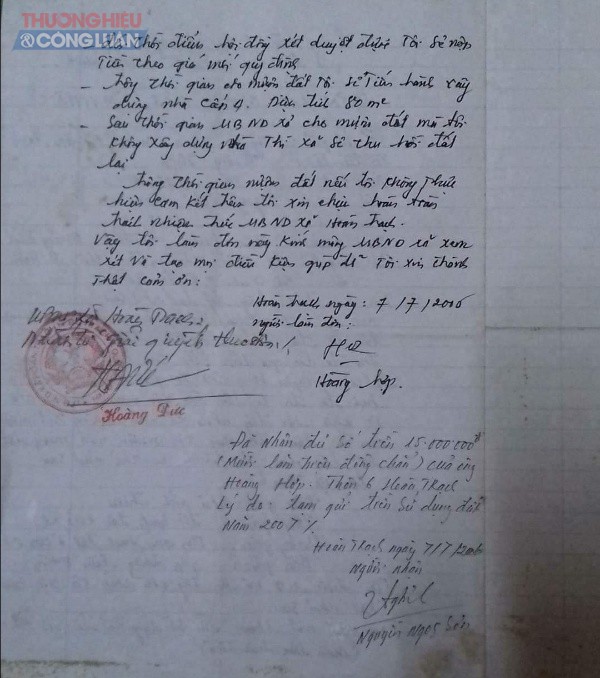 THƯƠNGHIỆU
&CÔNGLUẬN
thời điểm hội đồng xét duyệt được Tôi sẽ nộp
Tiền theo giá mới quy định
- thời gian cho mượn đất tôi sẽ Tiến hành xây
dựng nhà Cấp 4. Diện tích 80 m²
- Sau thời gian UBND xã cho mượn đất mà tôi
không xây dựng nhà Thì xã sẽ thu hồi đất
lại
thời gian mượn đất nếu tôi không thực
hiện cam kết trên tôi xin chịu hoàn toàn
trách nhiệm trước UBND xã Hoàn Trạch.
Vậy tôi làm đơn này kính mong UBND xã xem
xét và tạo mọi điều kiện giúp đỡ Tôi xin thành
Thật cảm ơn:
Hoàn Trạch ngày: 7/7/2006
người làm đơn:
Hoàng Hợp.
UBND xã Hoàn Trạch
Hoàng Đức
Đã Nhận đủ Số tiền 15.000.000đ
(Mười lăm triệu đồng chẵn) của ông
Hoàng Hợp - Thôn 6 Hoàn Trạch
Lý do: tạm gửi tiền Sử dụng đất
Năm 2007 %
Hoàn Trạch ngày 7/7/2006
Người nhận
Nguyễn Ngọc Sơn